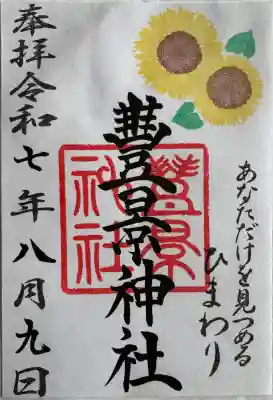 あなただけを見つめる
ひまわり
豐景神社
豐景
神社
奉拝令和七年八月九日